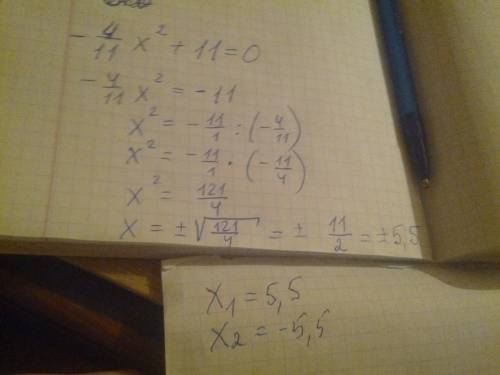 -4/11 x² + 11 = 0
-4/11 x² = -11
x² = -11/1 : (-4/11)
x² = -11/1 · (-11/4)
x² = 121/4
x = ±√(121/4) = ± 11/2 = ±5,5
x₁ = 5,5
x₂ = -5,5